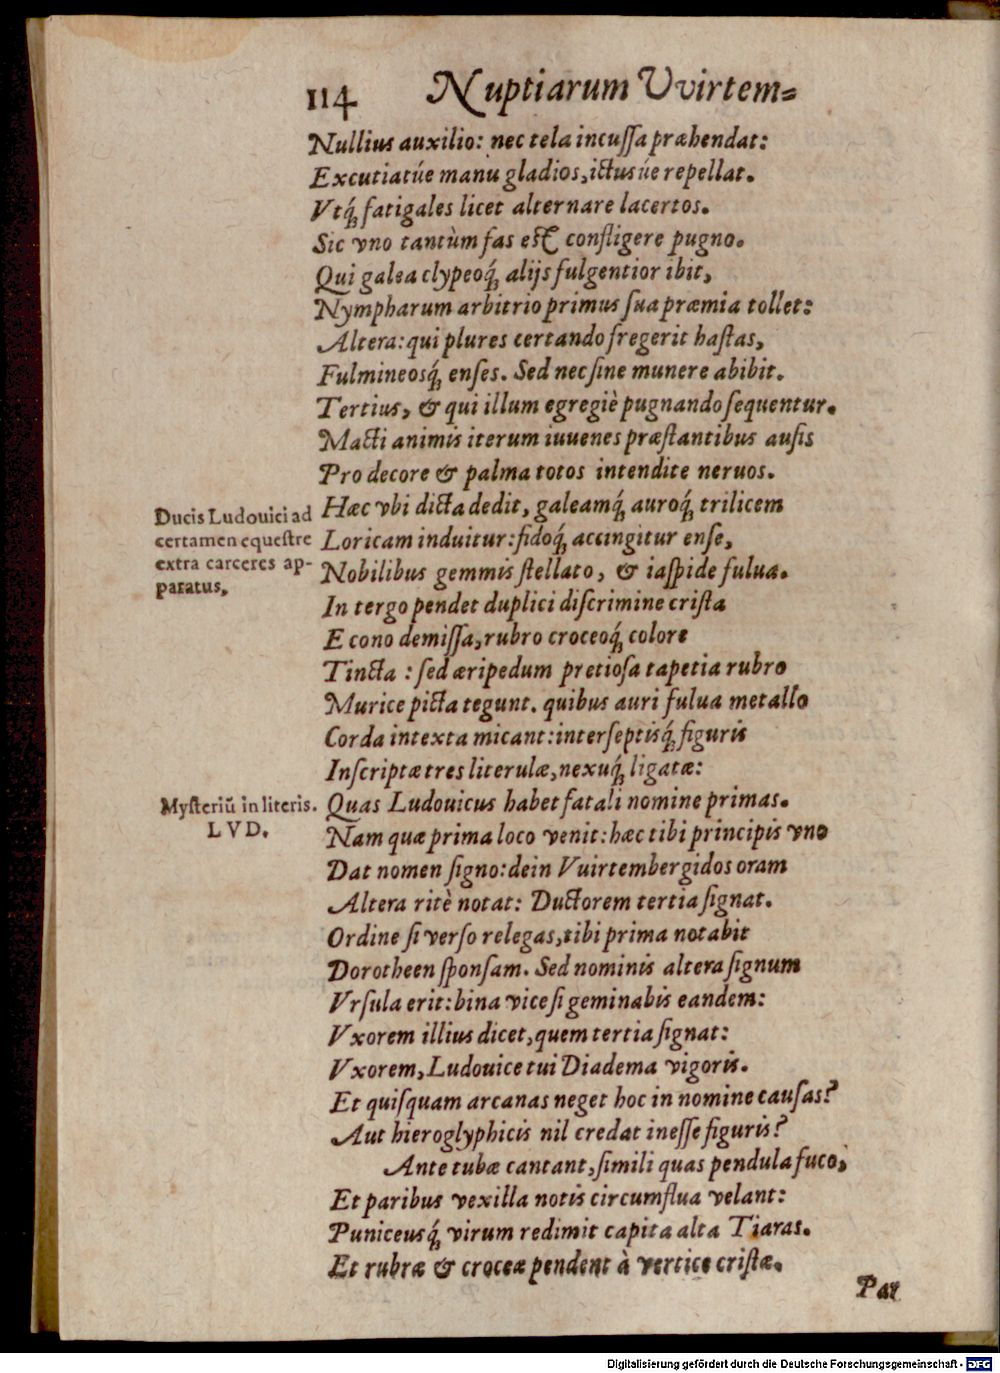 114 Nuptiarum Vvirtem⸗
Nullius auxilio: nec tela incuſſa præbendat:
Excutiatúe manu gladios, ictusúe repellat.
Vtq́ꝫ fatigales licet alternare lacertos.
Sic vno tantùm fas eſt confligere pugno.
Qui galea clypeoq́ꝫ alijs fulgentior ibit,
Nympharum arbitrio primus ſua præmia tollet:
Altera: qui plures certando fregerit haſtas,
Fulmineosq́ꝫ enſes. Sed nec ſine munere abibit.
Tertius, & qui illum egregiè pugnando ſequentur.
Macti animis iterum iuuenes præſtantibus auſis
Pro decore & palma totos intendite neruos.
Hæc vbi dicta dedit, galeamq́ꝫ auroq́ꝫ trilicem
Ducis Ludouici ad
certamen equeſtre
extra carceres ap-
paratus.
Loricam induitur: fidoq́ꝫ accingitur enſe,
Nobilibus gemmis ſtellato, & iaſpide fulua.
In tergo pendet duplici diſcrimine criſta
E cono demiſſa, rubro croceoq́ꝫ colore
Tincta : ſed æripedum pretioſa tapetia rubro
Murice picta tegunt. quibus auri fulua metallo
Corda intexta micant: interſeptisq́ꝫ figuris
Inſcriptæ tres literulæ, nexuq́ꝫ ligatæ:
Myſteriū in literis.
L V D.
Quas Ludouicus habet fatali nomine primas.
Nam quæ prima loco venit: hæc tibi principis vno
Dat nomen ſigno: dein Vuirtembergidos oram
Altera ritè notat: Ductorem tertia ſignat.
Ordine ſi verſo relegas, tibi prima notabit
Dorotheen ſponſam. Sed nominis altera ſignum
Vrſula erit: bina vice ſi geminabis eandem:
Vxorem illius dicet, quem tertia ſignat:
Vxorem, Ludouice tui Diadema vigoris.
Et quiſquam arcanas neget hoc in nomine cauſas?
Aut hieroglyphicis nil credat ineſſe figuris?
Ante tubæ cantant, ſimili quas pendula fuco,
Et paribus vexilla notis circumflua velant:
Puniceusq́ꝫ virum redimit capita alta Tiaras.
Et rubræ & croceæ pendent à vertice criſtæ.
Par
Digitalisierung gefördert durch die Deutsche Forschungsgemeinschaft - DFG